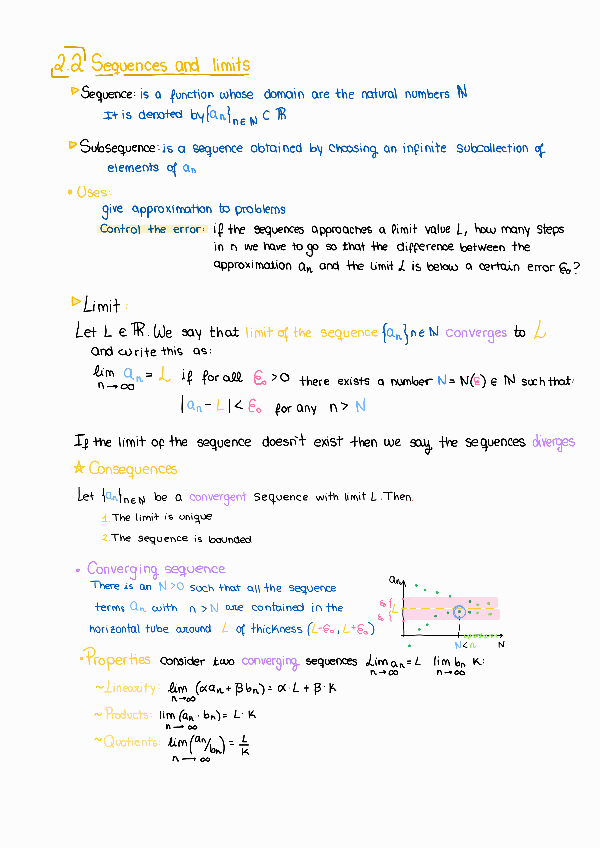 2.2 Sequences and limits
Sequence: is a function whose domain are the natural numbers ℕ
It is denoted by {aₙ}ₙ∈ℕ ⊂ ℝ
Subsequence: is a sequence obtained by choosing an infinite subcollection of
elements of aₙ
• Uses:
give approximation to problems
Control the error: if the sequences approaches a limit value L, how many steps
in n we have to go so that the difference between the
approximation aₙ and the limit L is below a certain error ε₀?
Limit:
Let L ∈ ℝ. We say that limit of the sequence {aₙ}n∈ℕ converges to L
and write this as:
lim aₙ = L if for all ε₀ > 0 there exists a number N = N(ε) ∈ ℕ such that:
n→∞
|aₙ - L| < ε₀ for any n > N
If the limit of the sequence doesn't exist then we say the sequences diverges
☆ Consequences
Let {aₙ}ₙ∈ℕ be a convergent sequence with limit L. Then.
1. The limit is unique
2. The sequence is bounded
• Converging sequence
There is an N>0 such that all the sequence
terms aₙ with n>N are contained in the
horizontal tube around L of thickness (L-ε₀, L+ε₀)
aₙ
ε₀
L
ε₀
N < n
N
• Properties consider two converging sequences lim aₙ = L lim bₙ K:
n→∞ n→∞
~Linearity: lim (αaₙ + βbₙ) = α·L + β·K
n→∞
~Products: lim (aₙ · bₙ) = L·K
n→∞
~Quotients: lim (aₙ/bₙ) = L/K
n→∞